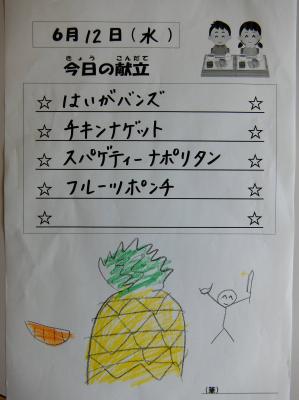 6月12日(水)
きょう こんだて
今日の献立
☆ はいがバンズ ☆
☆ チキンナゲット ☆
☆ スパゲティーナポリタン ☆
☆ フルーツポンチ ☆
☆ ☆
(筆)